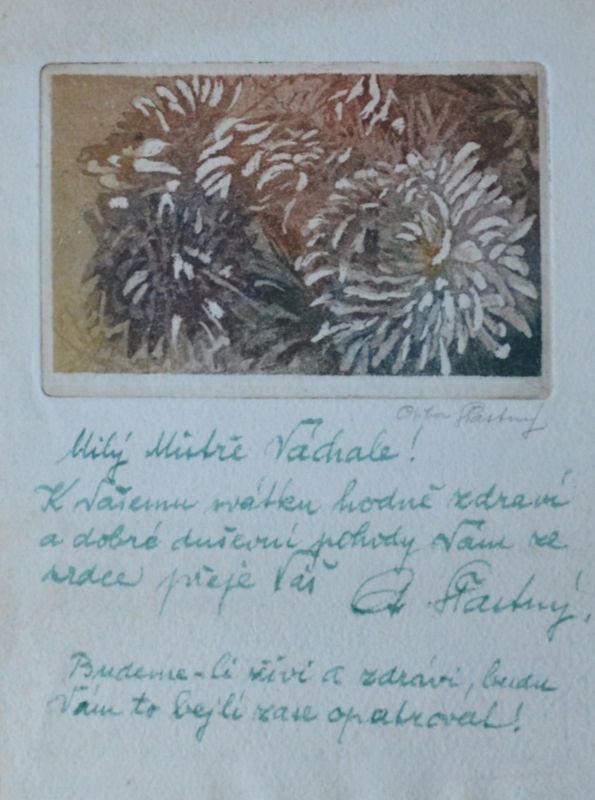 Otka Šťastný
Milý Mistře Váchale!
K Vašemu svátku hodně zdraví
a dobré duševní pohody Vám ze
srdce přeje Váš O. Šťastný.
Budeme-li živi a zdrávi, budu
Vám to bejlí zase opatrovat!